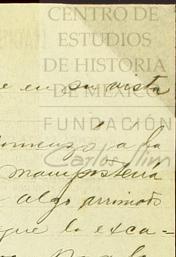 CENTRO DE
ESTUDIOS
DE HISTORIA
DE MÉXICO
e en su vista
FUNDACIÓN
a la
Carlos Slim
mamposteria
algo arrimado
que la exca-